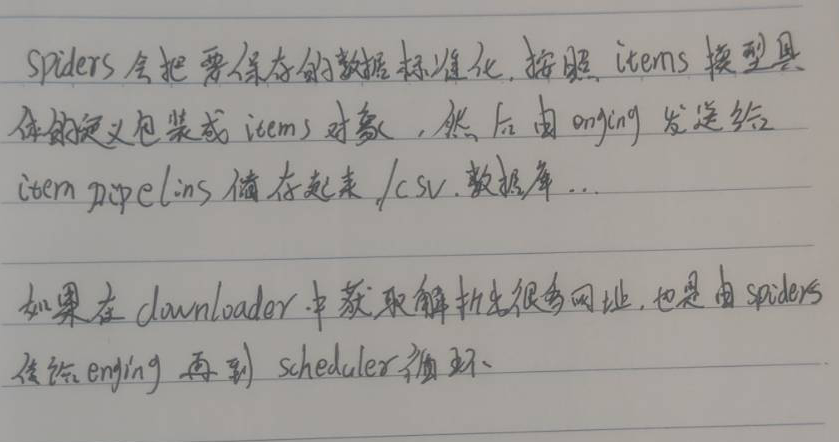 spiders会把要保存的数据标准化,按照items模型具
体的定义包装成items对象,然后由onging发送给
item pipelins储存起来/csv.数据库...
如果在downloader中获取解析出很多网址,也是由spiders
传给enging再到scheduler循环、